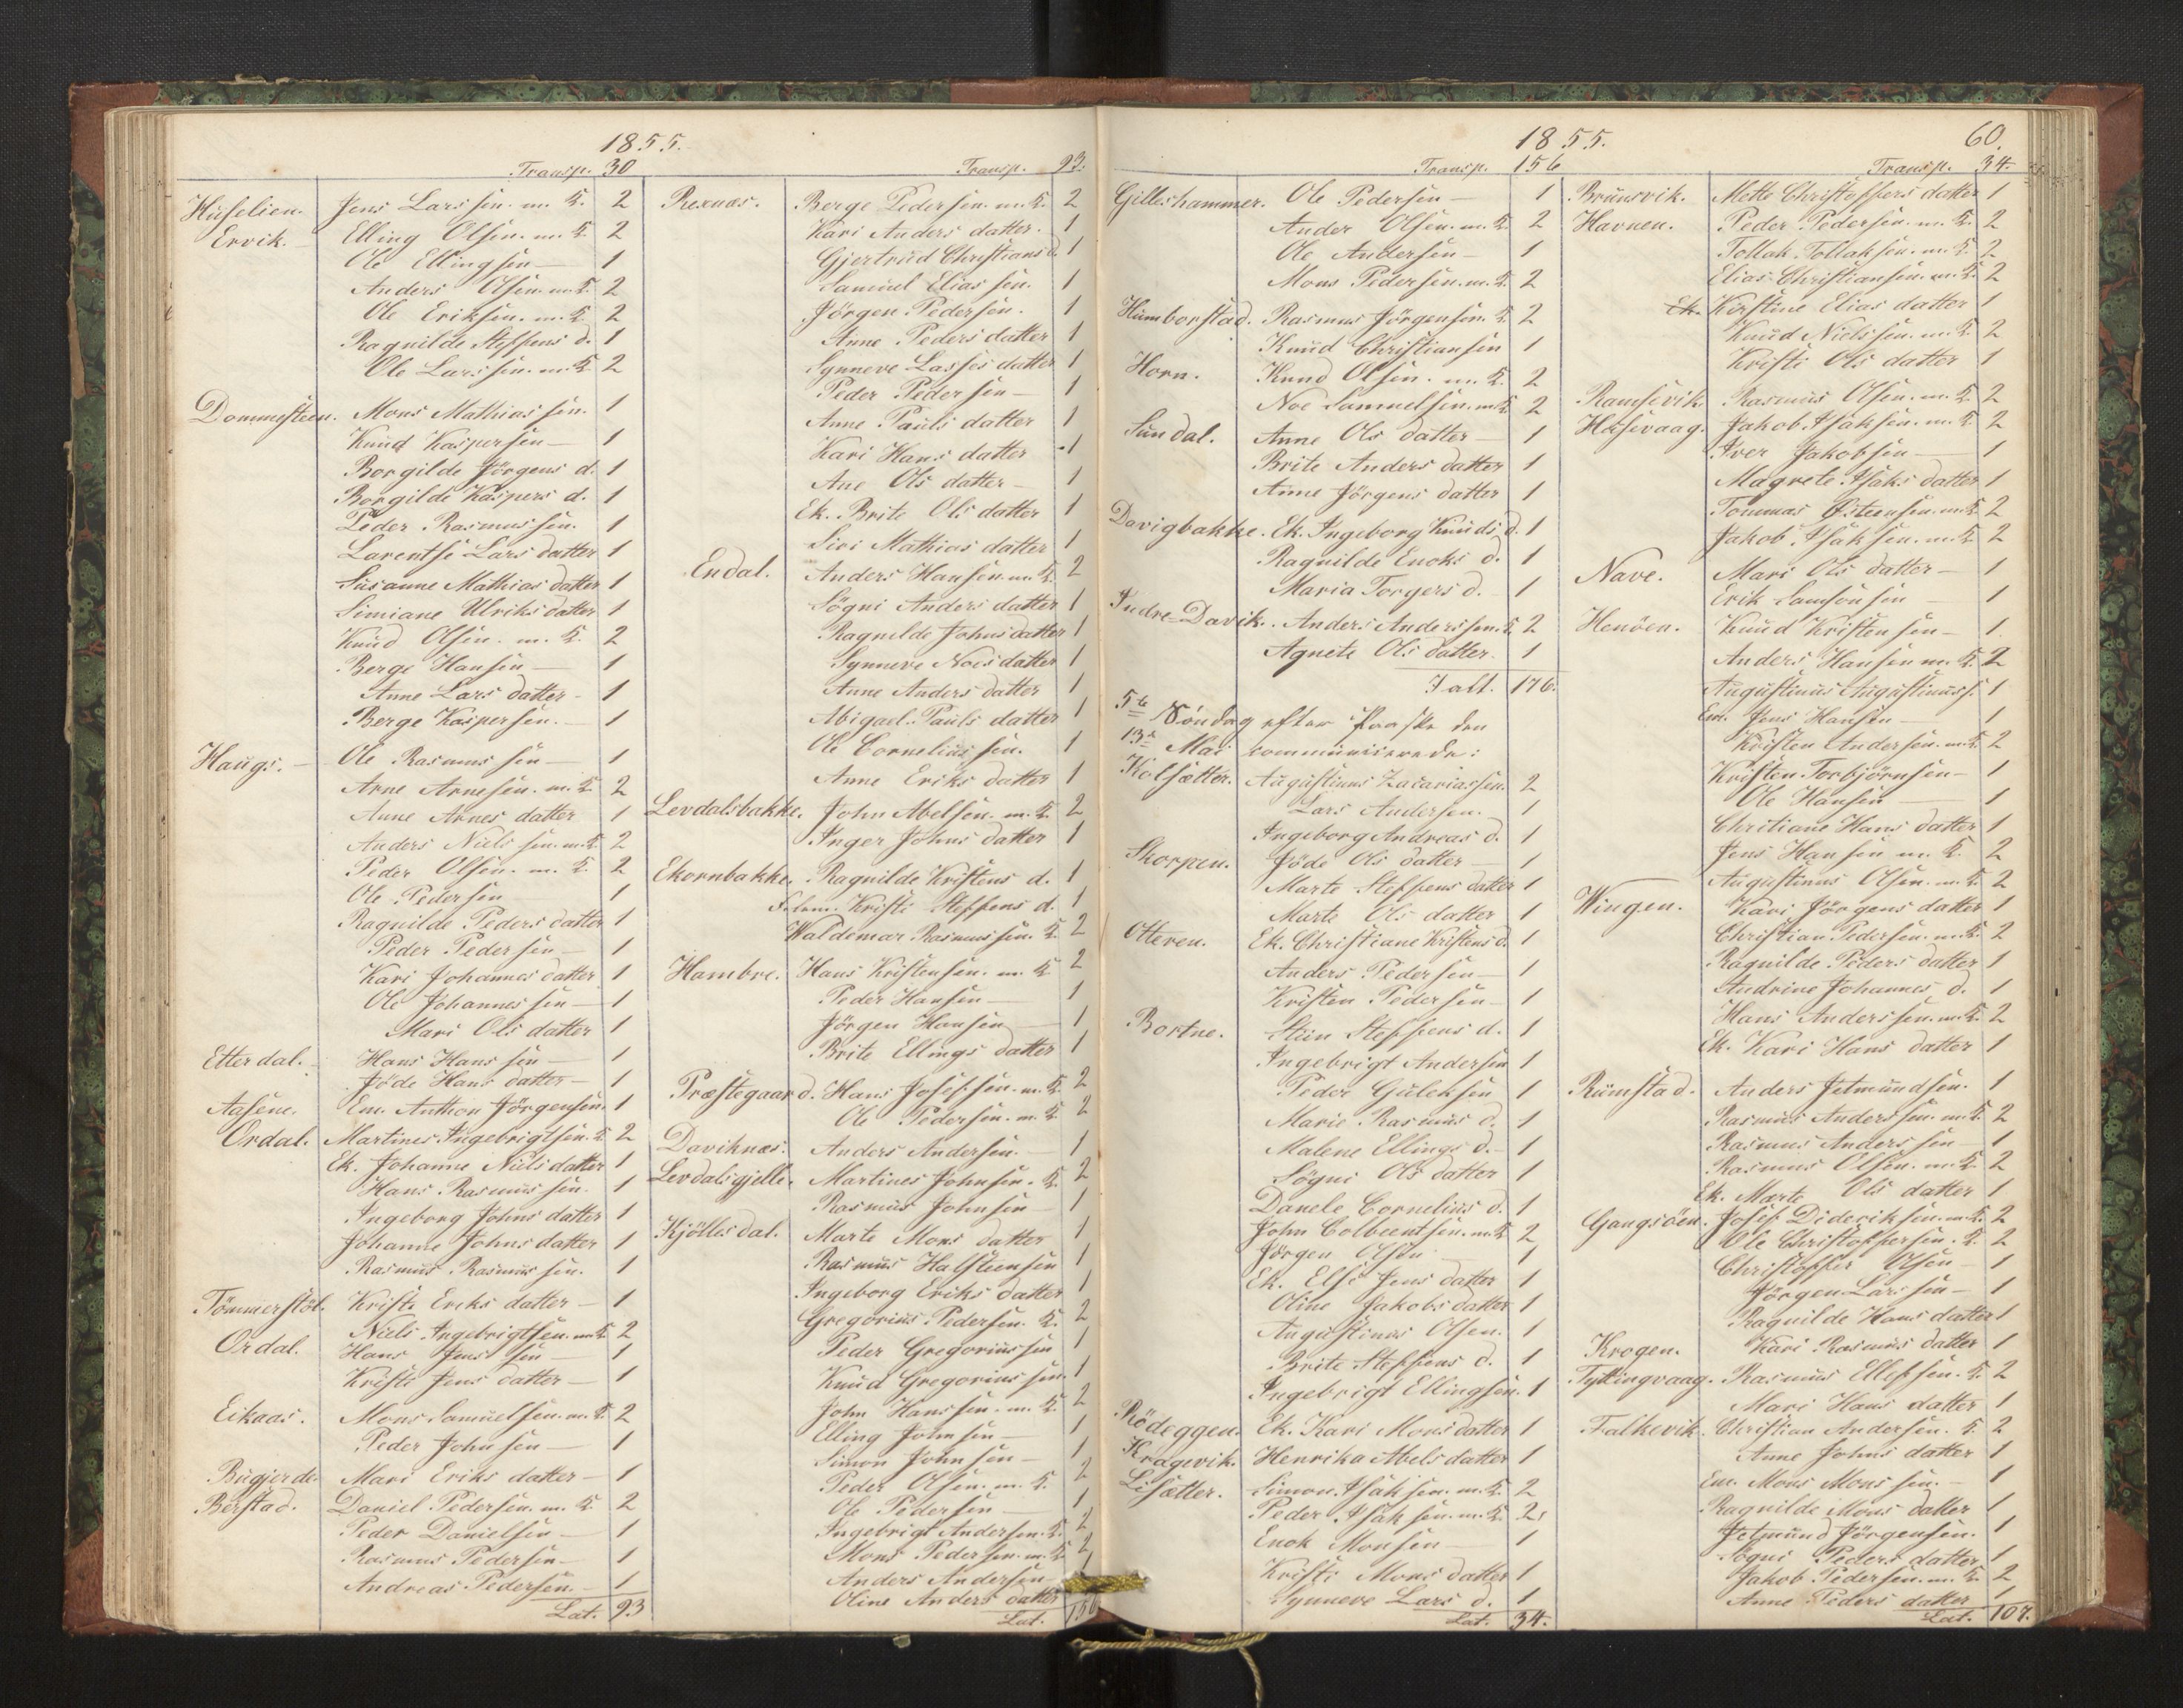 1855.
Transp. 30
Huselien. Jens Larssen. m. K. 2
Ervik. Elling Olsen. m. K. 2
Ole Ellingsen 1
Anders Olsen. m. K. 2
Ole Eriksen. m. K. 2
Ragnilde Steffens d. 1
Ole Larssen. m. K. 2
Dommesteen. Mons Mathiassen. 1
Knud Kaspersen 1
Borgilde Jörgens d. 1
Borgilde Kaspers d. 1
Peder Rasmussen. 1
Larentse Lars datter 1
Susanne Mathias datter 1
Simiane Ulriks datter 1
Knud Olsen. m. K. 2
Berge Hansen 1
Anne Lars datter 1
Berge Kaspersen. 1
Haugs. Ole Rasmussen 1
Arne Arnesen. m. K. 2
Anne Arnes datter 1
Anders Nielssen. m. K. 2
Peder Olsen. m. K. 2
Ole Pedersen 1
Ragnilde Peders datter 1
Peder Pedersen 1
Kari Johannes datter 1
Ole Johannessen 1
Mari Ols datter 1
Etterdal. Hans Hanssen 1
Jöde Hans datter 1
Aasene. Em. Anthon Jörgensen. 1
Ordal. Martines Ingebrigtsen. K. 2
Ek. Johanne Niels datter 1
Hans Rasmussen. 1
Ingeborg Johns datter 1
Johanne Johns datter 1
Rasmus Rasmussen. 1
Tömmerstöl. Kristi Eriks datter 1
Niels Ingebrigtsen. m. K. 2
Ordal. Hans Jenssen 1
Kristi Jens datter 1
Eikaas. Mons Samuelsen. m. K. 2
Peder Johnsen 1
Bugjerde. Mari Eriks datter 1
Berstad. Daniel Pedersen. m. K. 2
Peder Danielsen 1
Rasmus Pedersen 1
Andreas Pedersen. 1
Lat. 93
Transp. 93.
Rexnæs. Berge Pedersen. m. K. 2
Kari Anders datter. 1
Gjertrud Christians d. 1
Samuel Eliassen. 1
Jörgen Pedersen. 1
Anne Peders datter 1
Synneve Lasses datter 1
Peder Pedersen 1
Anne Pauls datter 1
Kari Hans datter 1
Ane Ols datter 1
Ek. Brite Ols datter 1
Siri Mathias datter 1
Endal. Anders Hansen. m. K. 2
Sögni Anders datter 1
Ragnilde Johns datter 1
Synneve Noes datter 1
Anne Anders datter 1
Abigael Pauls datter 1
Ole Corneliussen. 1
Anne Eriks datter 1
Levdalsbakke. John Abelsen. m. K. 2
Inger Johns datter 1
Ekornbakke. Ragnilde Kristens d. 1
Kristi Steffens d. 1
Waldemar Rasmussen. K. 2
Hambre. Hans Kristensen. m. K. 2
Peder Hansen 1
Jörgen Hansen 1
Brite Ellings datter 1
Præstegaard. Hans Josefsen. m. K. 2
Ole Pedersen. m. K. 2
Daviknæs. Anders Andersen. 1
Levdalsgjelle. Martines Johnsen. K. 2
Rasmus Johnsen 1
Kjöllesdal. Marte Mons datter 1
Rasmus Halsteensen 1
Ingeborg Eriks datter 1
Gregorius Pedersen. K. 2
Peder Gregoriussen 1
Knud Gregoriussen. 1
John Hanssen. m. K. 2
Elling Johnsen 1
Simon Johnsen 1
Peder Olsen. m. K. 2
Ole Pedersen 1
Ingebrigt Andersen. K. 2
Mons Pedersen. m. K. 2
Anders Andersen 1
Oline Anders datter
Lat. 156
1855.
60.
Transp. 156
Gilleshammer. Ole Pedersen 1
Ander Olsen. m. K. 2
Ole Andersen 1
Mons Pedersen. m. K. 2
Humborstad. Rasmus Jörgensen. K. 2
Knud Christiansen 1
Horn. Knud Olsen. m. K. 2
Noe Samuelsen. m. K. 2
Sundal. Anne Ols datter 1
Brite Anders datter 1
Anne Jörgens datter 1
Davigbakke. Ek. Ingeborg Knuds d. 1
Ragnilde Enoks d. 1
Maria Torgers d. 1
Indre-Davik. Anders Anderssen. K. 2
Agnete Ols datter. 1
I alt. 176.
5te Söndag efter Paaske den
13de Mai communiserede:
Kolsætter. Augustinus Zacariassen. 2
Lars Andersen. 1
Ingeborg Andreas d. 1
Skorpen. Jöde Ols datter 1
Marte Steffens datter 1
Marte Ols datter 1
Otteren. Ek. Christiane Kristens d. 1
Anders Pedersen 1
Kristen Pedersen 1
Bortne. Stein Steffens d. 1
Ingebrigt Andersen 1
Peder Guleksen 1
Marie Rasmus d. 1
Malene Ellings d. 1
Sögni Ols datter 1
Danele Cornelius d. 1
John Colbeentsen. m. K. 2
Jörgen Olsen 1
Ek. Else Jens datter 1
Oline Jakobs datter 1
Augustinus Olsen. 1
Brite Steffens d. 1
Ingebrigt Ellingsen. 1
Rödeggen. Ek. Kari Mons datter 1
Kragevik. Henrika Abels datter 1
Lisætter. Simon Isaksen. m. K. 2
Peder Isaksen. m. K. 2
Enok Monsen 1
Kristi Mons datter 1
Synneve Lars d. 1
Lat. 34.
Transp. 34.
Brunsvik. Mette Christoffers datter 1
Havnen. Peder Pedersen. m. K. 2
Tollak Tollaksen. m. K. 2
Elias Christiansen. m. K. 2
Ek. Kirstine Elias datter 1
Knud Nielssen. m. K. 2
Kristi Ols datter 1
Ramsevik Rasmus Olsen. m. K. 2
Husevaag. Jakob Isaksen. m. K. 2
Iver Jakobsen 1
Magrete Isaks datter 1
Tommas Östensen. m. K. 2
Jakob Isaksen. m. K. 2
Nave. Mari Ols datter 1
Erik Samsonsen 1
Henöen. Knud Kristensen 1
Anders Hansen m. K. 2
Augustinus Augustinuss. 1
Em. Jens Hansen 1
Kristen Andersen. m. K. 2
Kristen Torbjörnsen 1
Ole Hansen 1
Chritiane Hans datter 1
Jens Hansen m. K. 2
Augustinus Olsen. m. K. 2
Wingen. Kari Jörgens datter 1
Christian Pedersen. m. K. 2
Ragnilde Peders datter 1
Andrine Johannes d. 1
Hans Anderssen. m. K. 2
Ek. Kari Hans datter 1
Rumstad. Anders Jetmundsen. 1
Rasmus Anderssen. m. K. 2
Rasmus Anderssen 1
Rasmus Olsen. m. K. 2
Ek. Marte Ols datter 1
Gangsöen. Josef Dideriksen. m. K. 2
Ole Christoffersen. K. 2
Christoffer Olsen 1
Jörgen Larssen 1
Ragnilde Hans datter 1
Krogen. Kari Rasmus datter 1
Tyttingvaag. Rasmus Ellefsen. K. 2
Mari Hans datter 1
Falkevik. Christian Andersen. K. 2
Anne Johns datter 1
Em. Mons Monssen. 1
Ragnilde Mons datter 1
Jetmund Jörgensen. 1
Sögni Peders datter 1
Jakob Pedersen. m. K. 2
Anne Peders datter 1
Lat. 107.